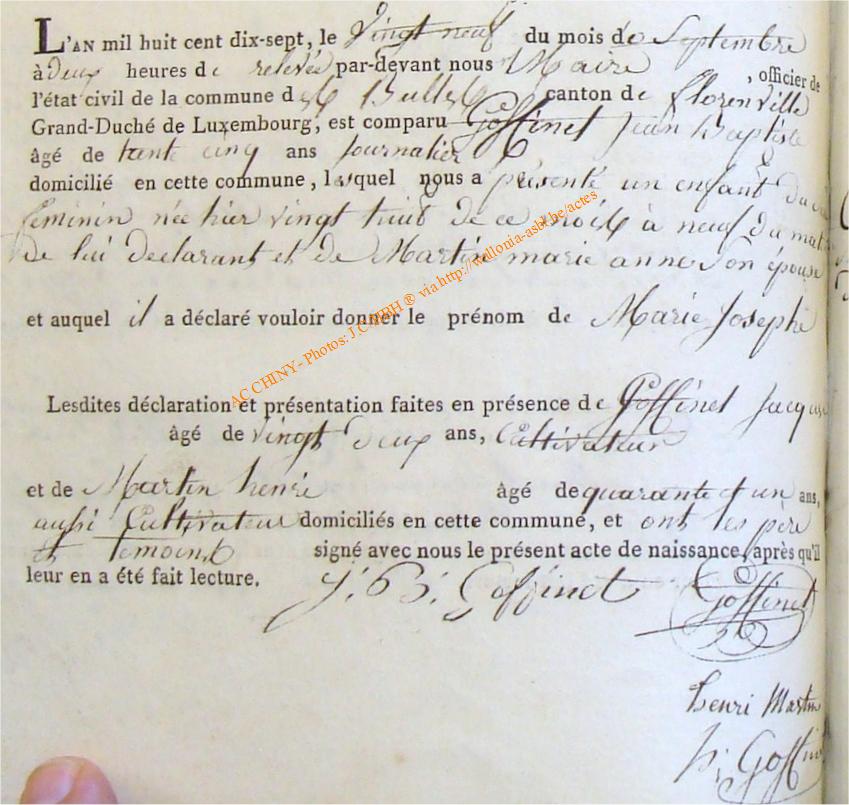 L'AN mil huit cent dix-sept, le Vingt neuf du mois de Septembre
à deux heures de relevée par-devant nous Maire , officier de
l'état civil de la commune de Bulles canton de florenville
Grand-Duché de Luxembourg, est comparu Goffinet jean Baptiste
âgé de tante cinq ans journalier
domicilié en cette commune, lesquel nous a présenté un enfant du
feminin née hier vingt huit de ce mois à neuf du mat
de lui declarant et de Martin marie anne Son épouse
et auquel il a déclaré vouloir donner le prénom de Marie Josephe
Lesdites déclaration et présentation faites en présence de Goffinet Jacque
âgé de vingt deux ans, Cultivateur
et de Martin henri âgé de quarante et un ans,
aussi Cultivateur domiciliés en cette commune, et ont les père
et temoins signé avec nous le présent acte de naissance, après qu'il
leur en a été fait lecture.
J. B. Goffinet
Goffinet
henri Martin
Goffin
AC CHINY - Photos: J.C. HBH ® via http://wallonia-asbl.be/actes